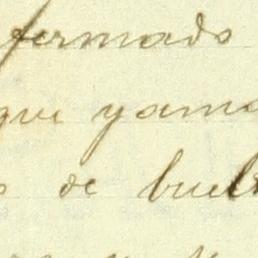 fermado
que yama
de buel